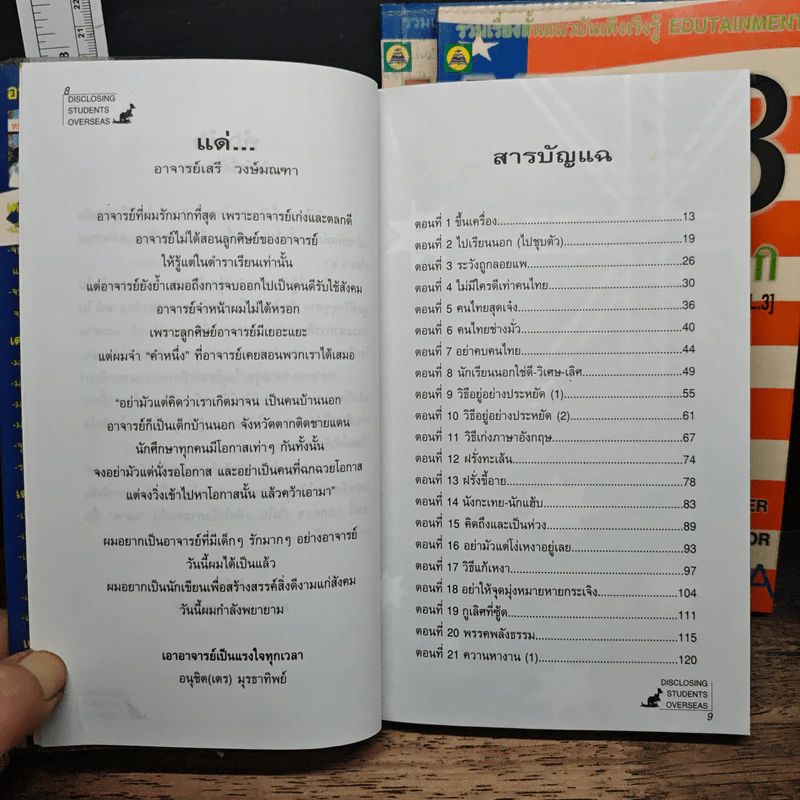 8
DISCLOSING
STUDENTS
OVERSEAS
แด่...
อาจารย์เสรี วงษ์มณฑา
อาจารย์ที่ผมรักมากที่สุด เพราะอาจารย์เก่งและตลกดี
อาจารย์ไม่ได้สอนลูกศิษย์ของอาจารย์
ให้รู้แต่ในตำราเรียนเท่านั้น
แต่อาจารย์ยังย้ำเสมอถึงการจบออกไปเป็นคนดีรับใช้สังคม
อาจารย์จำหน้าผมไม่ได้หรอก
เพราะลูกศิษย์อาจารย์มีเยอะแยะ
แต่ผมจำ “คำหนึ่ง” ที่อาจารย์เคยสอนพวกเราได้เสมอ
“อย่ามัวแต่คิดว่าเราเกิดมาจน เป็นคนบ้านนอก
อาจารย์ก็เป็นเด็กบ้านนอก จังหวัดตากติดชายแดน
นักศึกษาทุกคนมีโอกาสเท่าๆ กันทั้งนั้น
จงอย่ามัวแต่นั่งรอโอกาส และอย่าเป็นคนที่ฉกฉวยโอกาส
แต่จงวิ่งเข้าไปหาโอกาสนั้น แล้วคว้าเอามา”
ผมอยากเป็นอาจารย์ที่มีเด็กๆ รักมากๆ อย่างอาจารย์
วันนี้ผมได้เป็นแล้ว
ผมอยากเป็นนักเขียนเพื่อสร้างสรรค์สิ่งดีงามแก่สังคม
วันนี้ผมกำลังพยายาม
เอาอาจารย์เป็นแรงใจทุกเวลา
อนุชิต(เตร) มุรธาทิพย์
สารบัญแฉ
ตอนที่ 1 ขึ้นเครื่อง..........13
ตอนที่ 2 ไปเรียนนอก (ไปชุบตัว)..........19
ตอนที่ 3 ระวังถูกลอยแพ..........26
ตอนที่ 4 ไม่มีใครดีเท่าคนไทย..........30
ตอนที่ 5 คนไทยสุดเจ๋ง..........36
ตอนที่ 6 คนไทยช่างมั่ว..........40
ตอนที่ 7 อย่าคบคนไทย..........44
ตอนที่ 8 นักเรียนนอกใช่ดี-วิเศษ-เลิศ..........49
ตอนที่ 9 วิธีอยู่อย่างประหยัด (1)..........55
ตอนที่ 10 วิธีอยู่อย่างประหยัด (2)..........61
ตอนที่ 11 วิธีเก่งภาษาอังกฤษ..........67
ตอนที่ 12 ฝรั่งทะเล้น..........74
ตอนที่ 13 ฝรั่งขี้อาย..........78
ตอนที่ 14 นังกะเทย-นักแฮ้บ..........83
ตอนที่ 15 คิดถึงและเป็นห่วง..........89
ตอนที่ 16 อย่ามัวแต่โง่เหงาอยู่เลย..........93
ตอนที่ 17 วิธีแก้เหงา..........97
ตอนที่ 18 อย่าให้จุดมุ่งหมายหายกระเจิง..........104
ตอนที่ 19 กูเลิศที่ซู้ด..........111
ตอนที่ 20 พรรคพลังธรรม..........115
ตอนที่ 21 ควานหางาน (1)..........120
DISCLOSING
STUDENTS
OVERSEAS
9
รวมเรื่องสั้นแนวบันเทิงเริงรู้ EDUTAINMENT
3